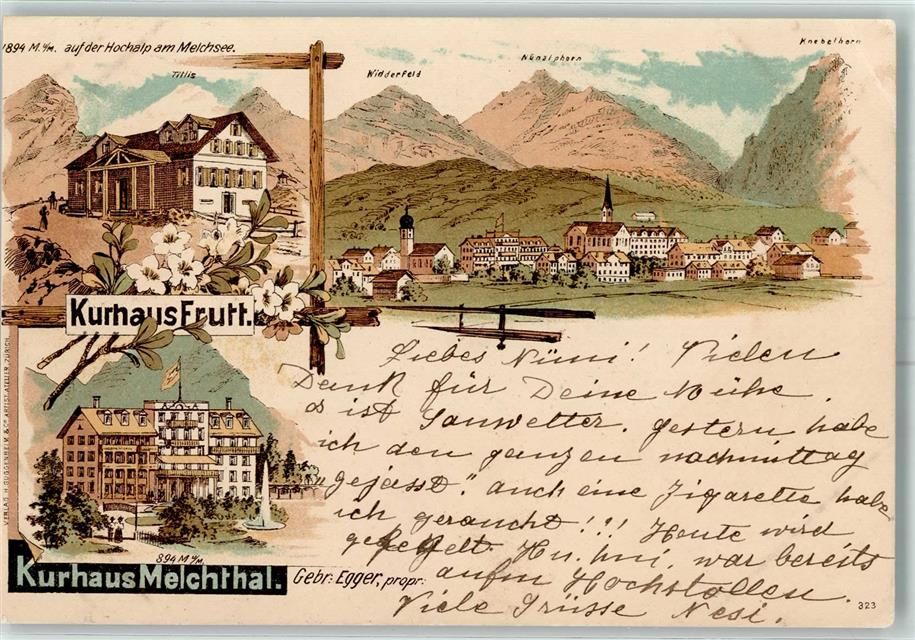 1894 M.ü/M. auf der Hochalp am Melchsee.
Titlis
Widderfeld
Nünalphorn
Knebelhorn
Kurhaus Frutt.
VERLAG H. GUGGENHEIM & Co ARTIST. ATELIER, ZÜRICH.
894 M ü/M.
Kurhaus Melchthal.
Gebr: Egger, propr:
Liebes Nümi! Vielen
Dank für Deine Mühe.
's ist Sauwetter, gestern habe
ich den ganzen nachmittag
"gejasst." auch eine Zigarette habe
ich geraucht!!! Heute wird
gekegelt. war bereits
aufm Hochstollen.
Viele Grüsse Nesi.
323